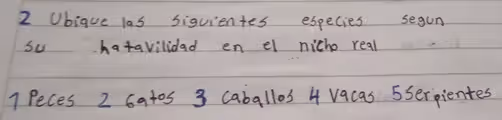 2 Ubique las siguientes especies segun
su hatavilidad en el nicho real
1 Peces 2 Gatos 3 caballos 4 vacas 5 Serpientes